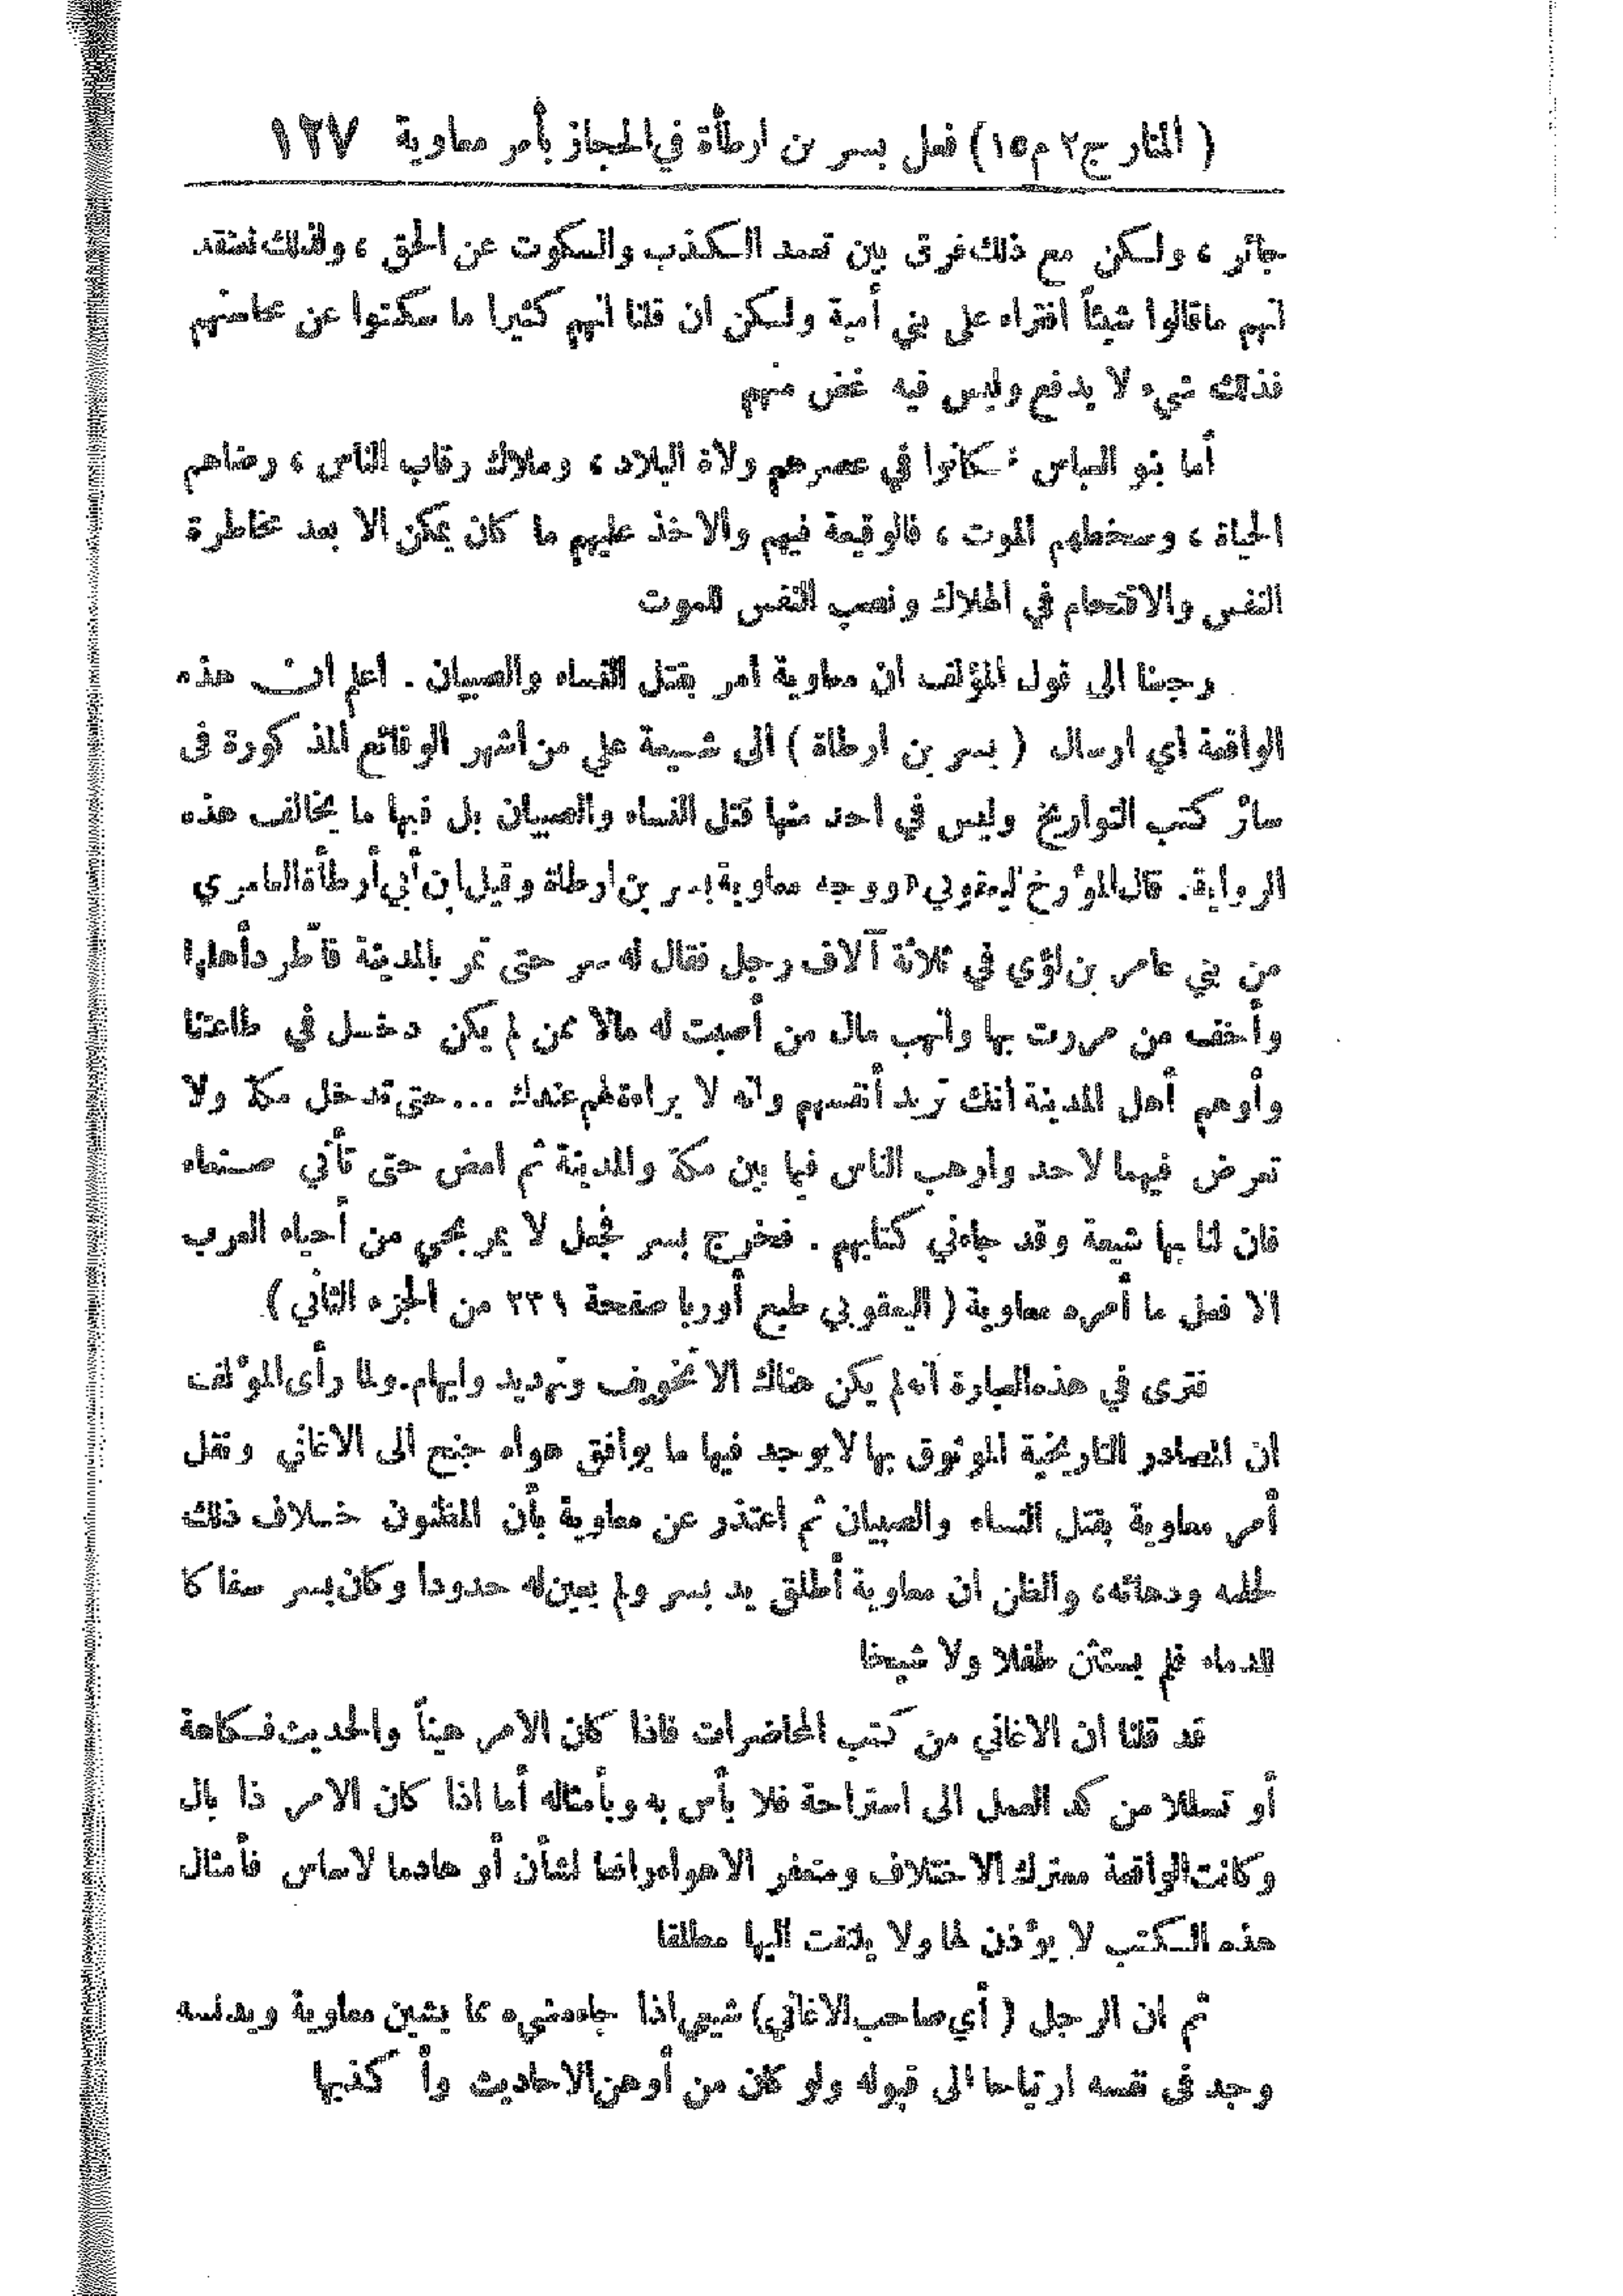 ( المنار ج٢ م١٥) فعل بسر بن ارطأة في الحجاز بأمر معاوية ١٢٧
جائر ، ولكن مع ذلك فرق بين تعمد الكذب والسكوت عن الحق ، ولذلك نعتقد
انهم ماقالوا شيئاً افتراء على بني أمية ولكن ان قلنا انهم كثيرا ما سكتوا عن محاسنهم
فذلك شيء لا يدفع وليس فيه غض منهم
أما بنو العباس فكانوا في عصرهم ولاة البلاد ، وملاك رقاب الناس ، رضاهم
الحياة ، وسخطهم الموت ، فالوقيعة فيهم والاخذ عليهم ما كان يمكن الا بعد مخاطرة
النفس والاقتحام في الهلاك ونصب النفس للموت
رجعنا الى قول المؤلف ان معاوية امر بقتل النساء والصبيان . اعلم ان هذه
الواقعة اي ارسال ( بسر بن ارطاة ) الى شيعة علي من أشهر الوقائع المذكورة فى
سائر كتب التواريخ وليس في احد منها قتل النساء والصبيان بل فيها ما يخالف هذه
الرواية. قال المؤرخ اليعقوبي «ووجه معاوية بسر بن ارطاة وقيل ابن أبي أرطأة العامري
من بني عامر بن لؤي في ثلاثة آلاف رجل فقال له سر حتى تمر بالمدينة فاطرد أهلها
وأخف من مررت بها وانهب مال من أصبت له مالا ممن لم يكن دخل في طاعتنا
وأوهم أهل المدينة انك تريد أنفسهم وانه لا براءة لهم عندك ... حتى تدخل مكة ولا
تعرض فيها لاحد وارهب الناس فيما بين مكة والمدينة ثم امض حتى تأتي صنعاء
فان لنا بها شيعة وقد جاءني كتابهم . فخرج بسر فجعل لا يمر بحي من أحياء العرب
الا فعل ما أمره معاوية ( اليعقوبي طبع أوربا صفحة ٢٣١ من الجزء الثاني )
فترى في هذه العبارة انه لم يكن هناك الا تخويف وتهديد وايهام. ولما رأى المؤلف
ان المصادر التاريخية الموثوق بها لا يوجد فيها ما يوافق هواه جنح الى الاغاني ونقل
أمر معاوية بقتل النساء والصبيان ثم اعتذر عن معاوية بأن المظنون خلاف ذلك
لحلمه ودهائه، والظن ان معاوية أطلق يد بسر ولم يعين له حدودا وكان بسر سفاكا
للدماء فلم يستثن طفلا ولا شيخا
قد قلنا ان الاغاني من كتب المحاضرات فاذا كان الامر هيناً والحديث فكاهة
أو تسللا من كد العمل الى استراحة فلا بأس به وبأمثاله أما اذا كان الامر ذا بال
وكانت الواقعة معترك الاختلاف ومتعفر الاهواء رافعا لشأن أو هادما لاساس فأمثال
هذه الكتب لا يؤذن لها ولا يلتفت اليها مطلقا
ثم ان الرجل ( أي صاحب الاغاني) شيعي اذا جاءه شيء مما يشين معاوية ويدنسه
وجد فى نفسه ارتياحا الى قبوله ولو كان من أوهن الاحاديث وأكذبها